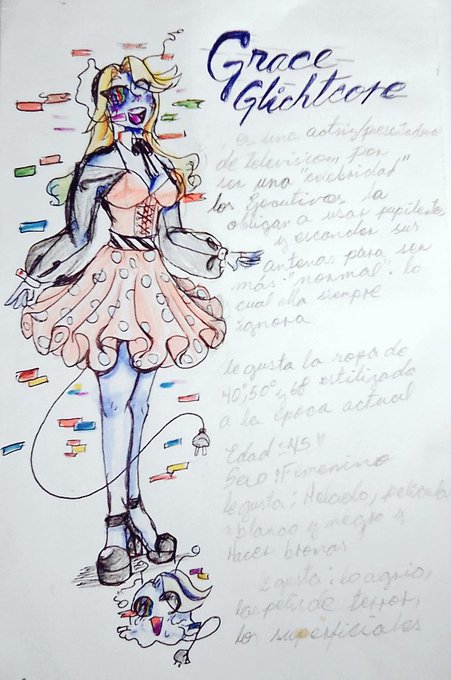 Grace
Glichtcore
es una actriz/presentadora
de television por
ser una "celebridad"
los ejecutivos la
obligan a usar pupilentes
y esconder sus
antenas para ser
más "normal", lo
cual ella siempre
ignora
le gusta la ropa de
40', 50' y 60' estilizado
a la época actual
Edad: 45
Sexo: Femenino
le gusta: Helado, películas
blanco y negro y
Hacer bromas
gusta: lo agrio,
las pelis de terror,
los superficiales